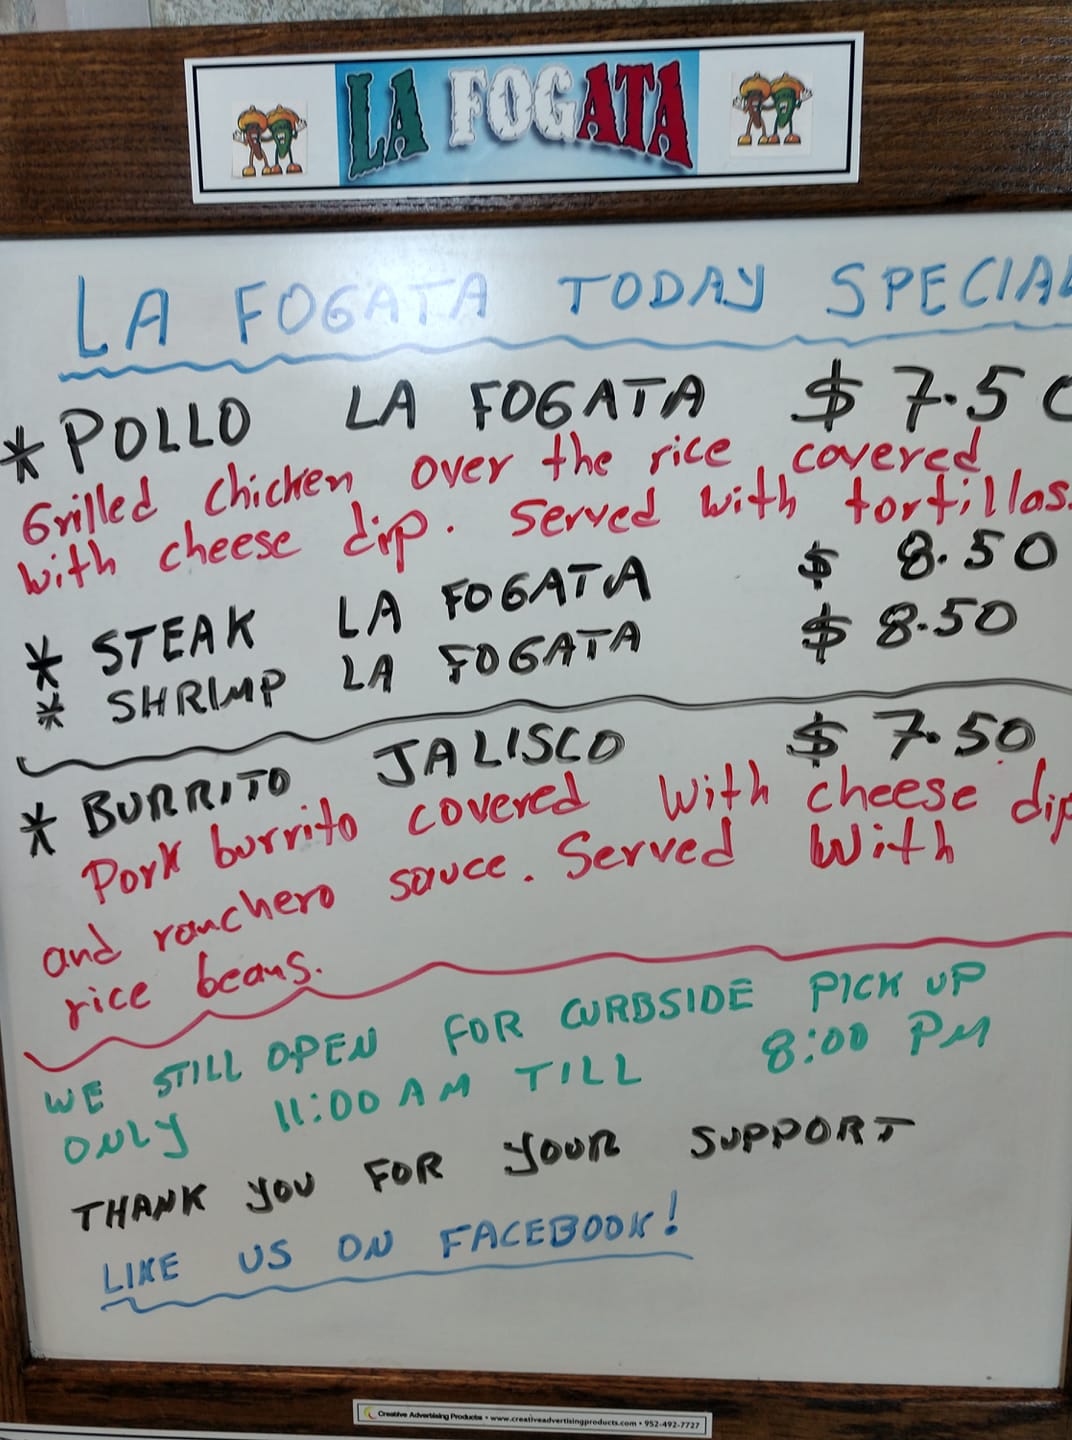 LA FOGATA
LA FOGATA TODAY SPECIAL
* POLLO LA FOGATA $ 7.50
Grilled chicken over the rice, covered
with cheese dip. Served with tortillas.
* STEAK LA FOGATA $ 8.50
* SHRIMP LA FOGATA $ 8.50
* BURRITO JALISCO $ 7.50
Pork burrito covered with cheese dip
and ranchero sauce. Served with
rice beans.
WE STILL OPEN FOR CURBSIDE PICK UP
ONLY 11:00 AM TILL 8:00 PM
THANK YOU FOR YOUR SUPPORT
LIKE US ON FACEBOOK!
Creative Advertising Products • www.creativeadvertisingproducts.com • 952-492-7727